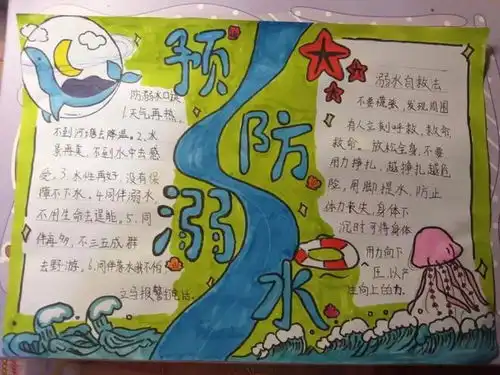 预
防
溺
水
防溺水口诀
1.天气再热,
不到河塘去降温。2.水
景再美,不到水中去感
受。3.水性再好,没有保
障不下水。4.同伴溺水,
不用生命去逞能。5.同
伴再多,不三五成群
去野游。6.同伴落水我不怕
立马报警打电话。
溺水自救法
不要慌张,发现周围
有人立刻呼救,救命
救命。放松全身,不要
用力挣扎,越挣扎越危
险,用脚提水,防止
体力丧失,身体下
沉时可将身体
用力向下
压,以产
生向上的力。